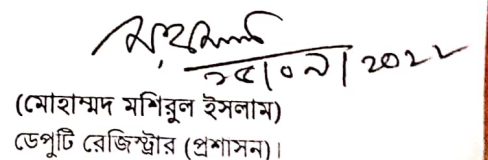 ২৫|০৯|২০২২
(মোহাম্মদ মশিরুল ইসলাম)
ডেপুটি রেজিস্ট্রার (প্রশাসন)।